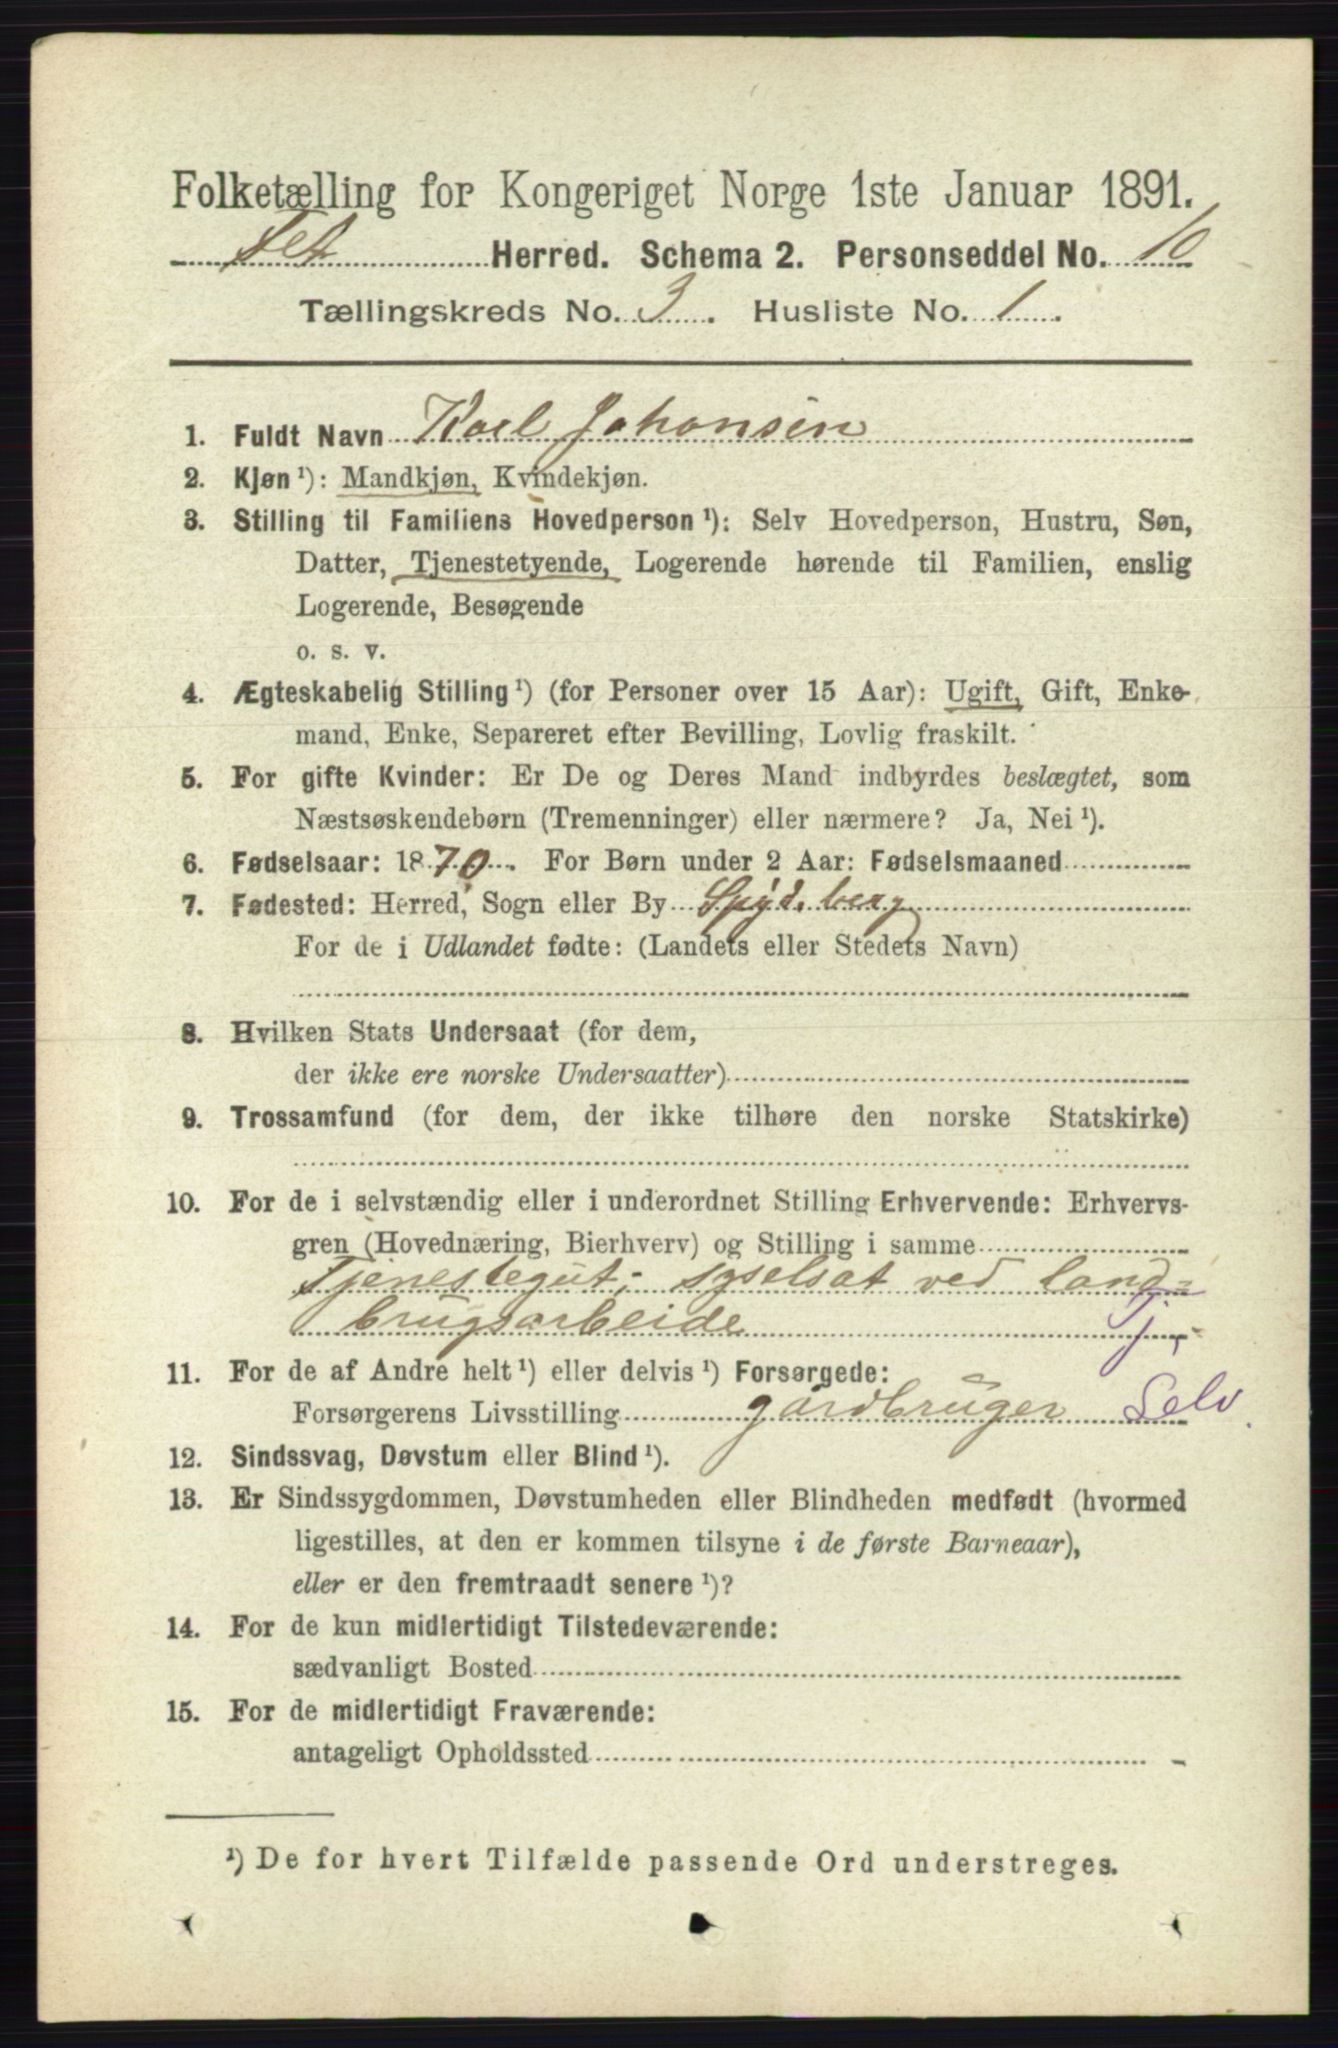 Folketælling for Kongeriget Norge 1ste Januar 1891.
Fet Herred. Schema 2. Personseddel No. 10
Tællingskreds No. 3. Husliste No. 1.
1. Fuldt Navn Karl Johansen
2. Kjøn¹): Mandkjøn, Kvindekjøn.
3. Stilling til Familiens Hovedperson¹): Selv Hovedperson, Hustru, Søn,
Datter, Tjenestetyende, Logerende hørende til Familien, enslig
Logerende, Besøgende
o. s. v.
4. Ægteskabelig Stilling¹) (for Personer over 15 Aar): Ugift, Gift, Enke-
mand, Enke, Separeret efter Bevilling, Lovlig fraskilt.
5. For gifte Kvinder: Er De og Deres Mand indbyrdes beslægtet, som
Næstsøskendebørn (Tremenninger) eller nærmere? Ja, Nei¹).
6. Fødselsaar: 1870. For Børn under 2 Aar: Fødselsmaaned
7. Fødested: Herred, Sogn eller By Spydeberg
For de i Udlandet fødte: (Landets eller Stedets Navn)
8. Hvilken Stats Undersaat (for dem,
der ikke ere norske Undersaatter)
9. Trossamfund (for dem, der ikke tilhøre den norske Statskirke)
10. For de i selvstændig eller i underordnet Stilling Erhvervende: Erhvervs-
gren (Hovednæring, Bierhverv) og Stilling i samme
Tjenestegut; syselsat ved land-
brugsarbeide Tj.
11. For de af Andre helt¹) eller delvis¹) Forsørgede:
Forsørgerens Livsstilling gårdbruger Selv.
12. Sindssvag, Døvstum eller Blind¹).
13. Er Sindssygdommen, Døvstumheden eller Blindheden medfødt (hvormed
ligestilles, at den er kommen tilsyne i de første Barneaar),
eller er den fremtraadt senere¹)?
14. For de kun midlertidigt Tilstedeværende:
sædvanligt Bosted
15. For de midlertidigt Fraværende:
antageligt Opholdssted
¹) De for hvert Tilfælde passende Ord understreges.